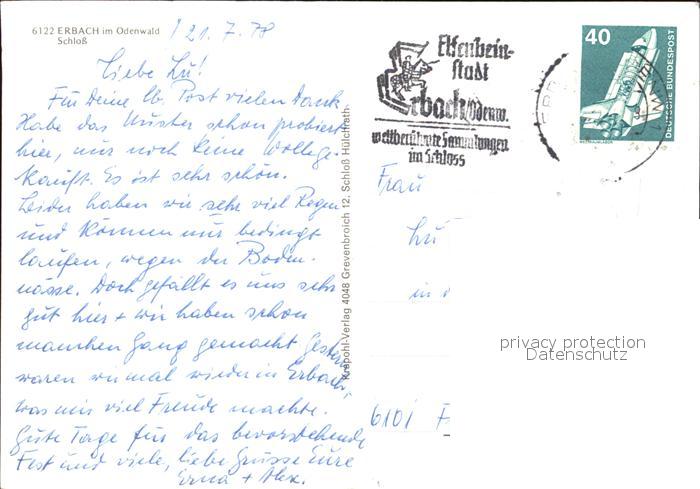 6122 ERBACH im Odenwald
Schloß
21.7.78
Liebe Lu!
Für Deine lb. Post vielen Dank
Habe das Muster schon probiert
hier, nur noch keine Wolle ge-
kauft. Es ist sehr schön.
Leider haben wir sehr viel Regen
und können nur bedingt
laufen, wegen der Boden-
nässe. Doch gefällt es uns sehr
gut hier + wir haben schon
manchen Gang gemacht Gestern
waren wir mal wieder in Erbach,
was mir viel Freude machte.
Gute Tage für das bevorstehende
Fest und viele, liebe Grüsse Eure
Erna + Alex.
Krapohl-Verlag 4048 Grevenbroich 12, Schloß Hülchrath
Elfenbein-
stadt
Erbach/Odenw.
weltberühmte Sammlungen
im Schloss
40
DEUTSCHE BUNDESPOST
WELTRAUMLABOR
Frau
Lu
in
6101 F
privacy protection
Datenschutz